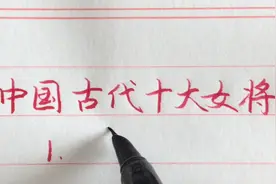 中国古代十大女将
1.